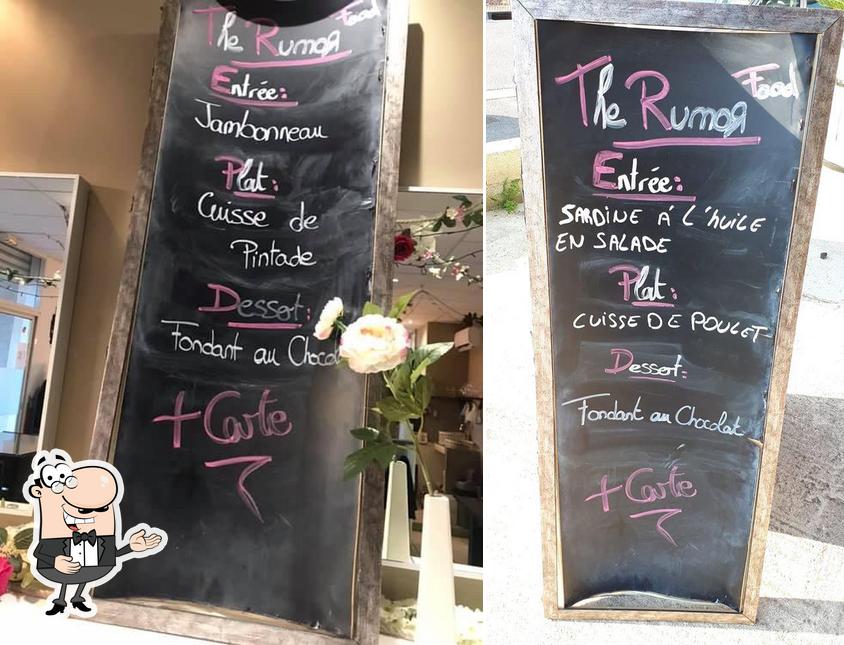 The Rumor Food
Entrée:
Jambonneau
Plat:
Cuisse de
Pintade
Dessert:
Fondant au Chocolat
+ Carte
The Rumor Food
Entrée:
SARDINE À L'HUILE
EN SALADE
Plat:
CUISSE DE POULET
Dessert:
Fondant au Chocolat
+ Carte